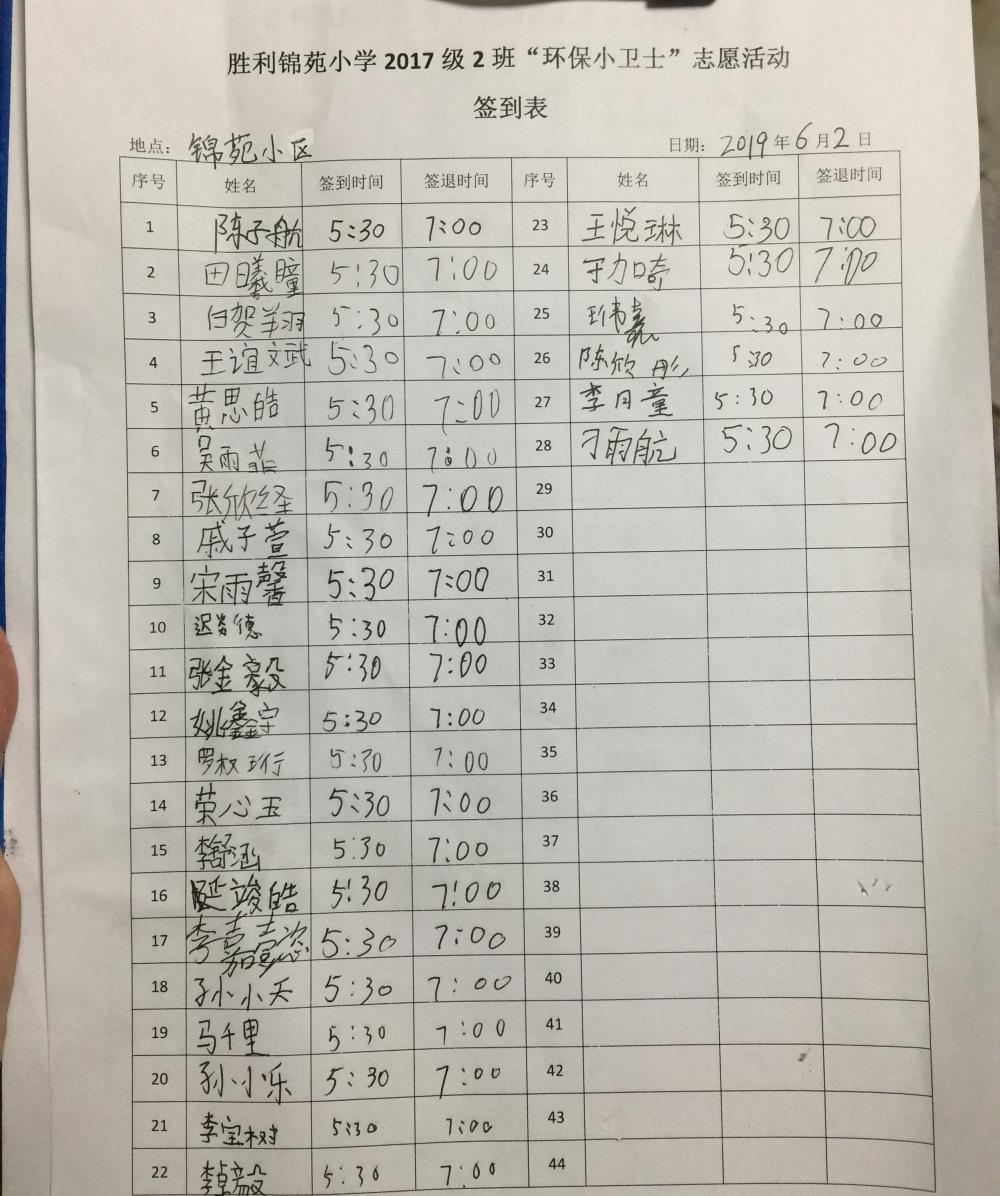 胜利锦苑小学 2017 级 2 班“环保小卫士”志愿活动
签到表
地点： 锦苑小区 日期： 2019 年 6 月 2 日
序号 姓名 签到时间 签退时间 序号 姓名 签到时间 签退时间
1 陈子航 5:30 7:00 23 王悦琳 5:30 7:00
2 田曦瞳 5:30 7:00 24 于力口奇 5:30 7:00
3 白贺羊羽 5:30 7:00 25 5:30 7:00
4 王谊文武 5:30 7:00 26 陈欣彤 5:30 7:00
5 黄思皓 5:30 7:00 27 李月童 5:30 7:00
6 吴雨菲 5:30 7:00 28 刁雨航 5:30 7:00
7 张欣经 5:30 7:00 29
8 戚子萱 5:30 7:00 30
9 宋雨馨 5:30 7:00 31
10 5:30 7:00 32
11 张金毅 5:30 7:00 33
12 姚鑫宇 5:30 7:00 34
13 罗权珩 5:30 7:00 35
14 荣心玉 5:30 7:00 36
15 李舒涵 5:30 7:00 37
16 延竣皓 5:30 7:00 38
17 5:30 7:00 39
18 孙小天 5:30 7:00 40
19 马千里 5:30 7:00 41
20 孙小乐 5:30 7:00 42
21 李宝树 5:30 7:00 43
22 5:30 7:00 44